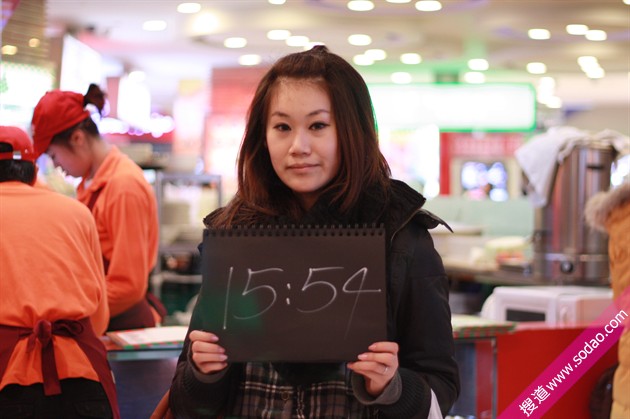 15:54
搜道www.sodao.com